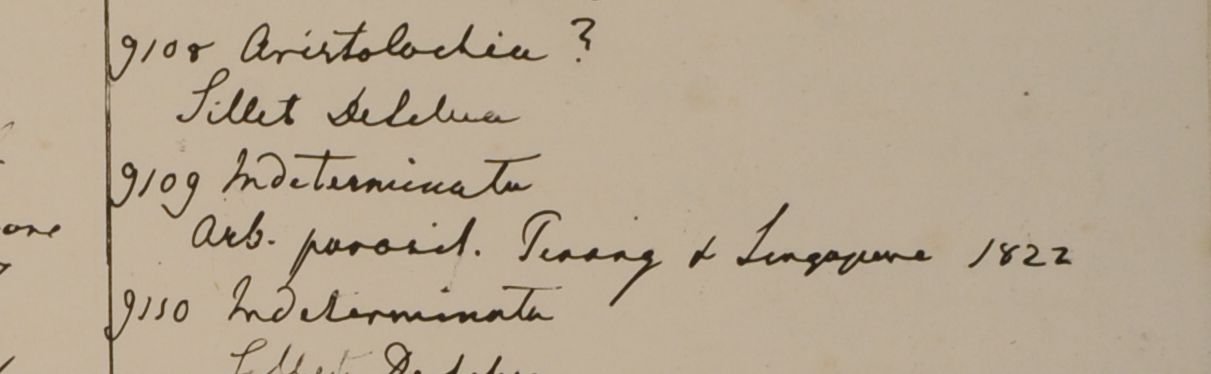 9108 Aristolochia ?
Sillet DeSelua
9109 Indeterminata
Arb. parasit. Penang & Singapure 1822
9110 Indeterminata
Sillet DeSelua
one